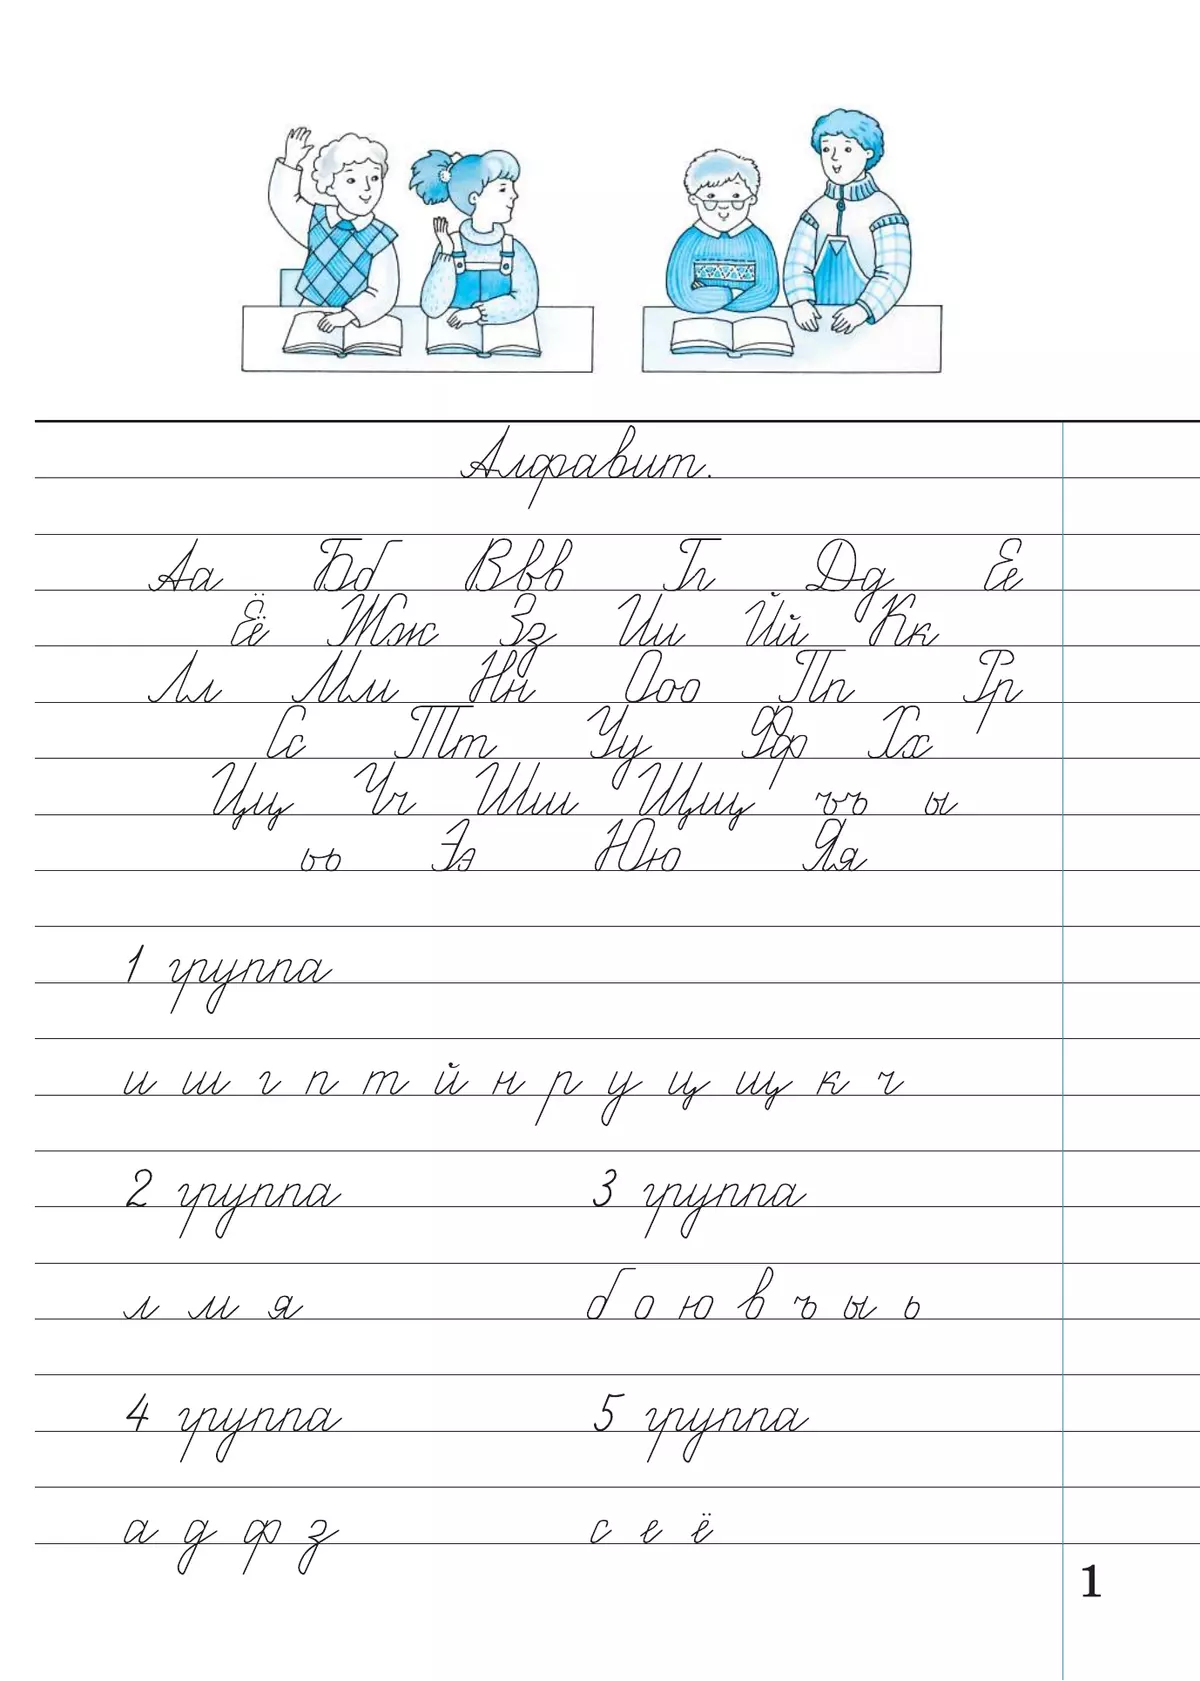 Алфавит.
Аа Бб Ввв Гг Дд Ее
Ёё Жж Зз Ии Йй Кк
Лл Мм Нн Ооо Пп Рр
Сс Тт Уу Фф Хх
Цц Чч Шш Щщ ъъ ы
ьь Ээ Юю Яя
1 группа
и ш г п т й н р у ц щ к ч
2 группа 3 группа
л м я б о ю в ъ ы ь
4 группа 5 группа
а д ф з с е ё
1